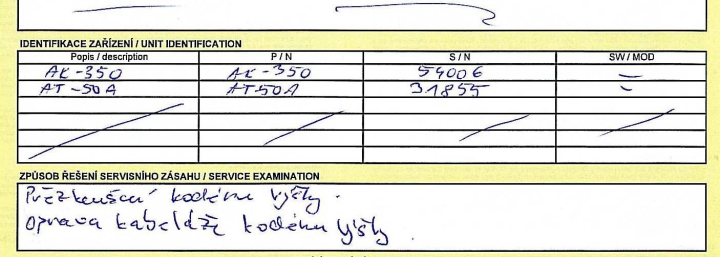 IDENTIFIKACE ZAŘÍZENÍ / UNIT IDENTIFICATION
Popis / description P / N S / N SW / MOD
AK-350 AK-350 54006 —
AT-50A AT50A 31855 -
ZPŮSOB ŘEŠENÍ SERVISNÍHO ZÁSAHU / SERVICE EXAMINATION
Přezkoušení kodéru výšky.
Oprava kabeláže kodéru výšky